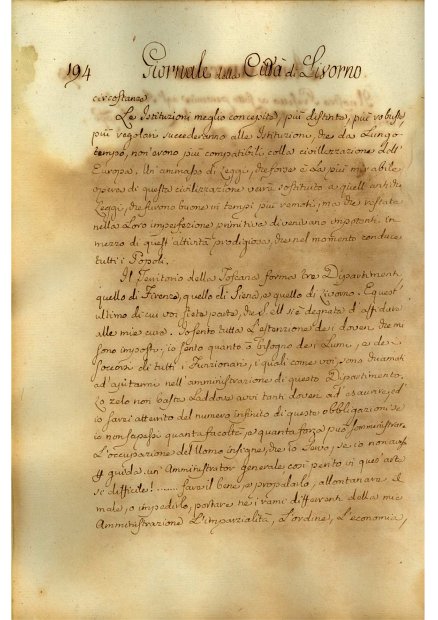 194 Giornale della Città di Livorno
circostanze
Le Istituzioni meglio concepite, più distinte, più robuste,
più regolari succederanno alle Istituzioni, che da lungo-
tempo, non erono più compatibili colla civilizzazione dell'
Europa. Un ammasso di Leggi, che forse è la più mirabile
opera di questa civilizzazione verrà sostituito a quell' antiche
Leggi, che furono buone in tempi più remoti; ma che restate
nella loro imperfezione primitiva divenivano impotenti in
mezzo di quest' attività prodigiosa, che nel momento conduce
tutti i Popoli.
Il Territorio della Toscana forma tre Dipartimenti,
quello di Firenze, quello di Siena, e quello di Livorno. E quest'
ultimo di cui voi fate parte, che si è degnata d'affidare
alle mie cure. Io sento tutta l'estenzione dei doveri che mi
sono imposti; io sento quanto ò bisogno dei Lumi, e dei
soccorsi di tutti i Funzionari, i quali come voi, sono chiamati
ad ajutarmi nell' amministrazione di questo Dipartimento.
Lo zelo non basta laddove avvi tanti doveri ad esaurire, ed
io sarei atterrito del numero infinito di queste obbligazioni se
io non sapessi quanta facoltà, e quanta forza può somministrare
l'occupazione del Uomo insigne, che io servo, se io non avessi
p guida un' Amministrator generale così perito in quest' arte
sì difficile! ........ fare il bene, e propalarlo, allontanare il
male, o impedirlo, portare ne i rami differenti della mia
Amministrazione l'imparzialità, l'ordine, l'economia,